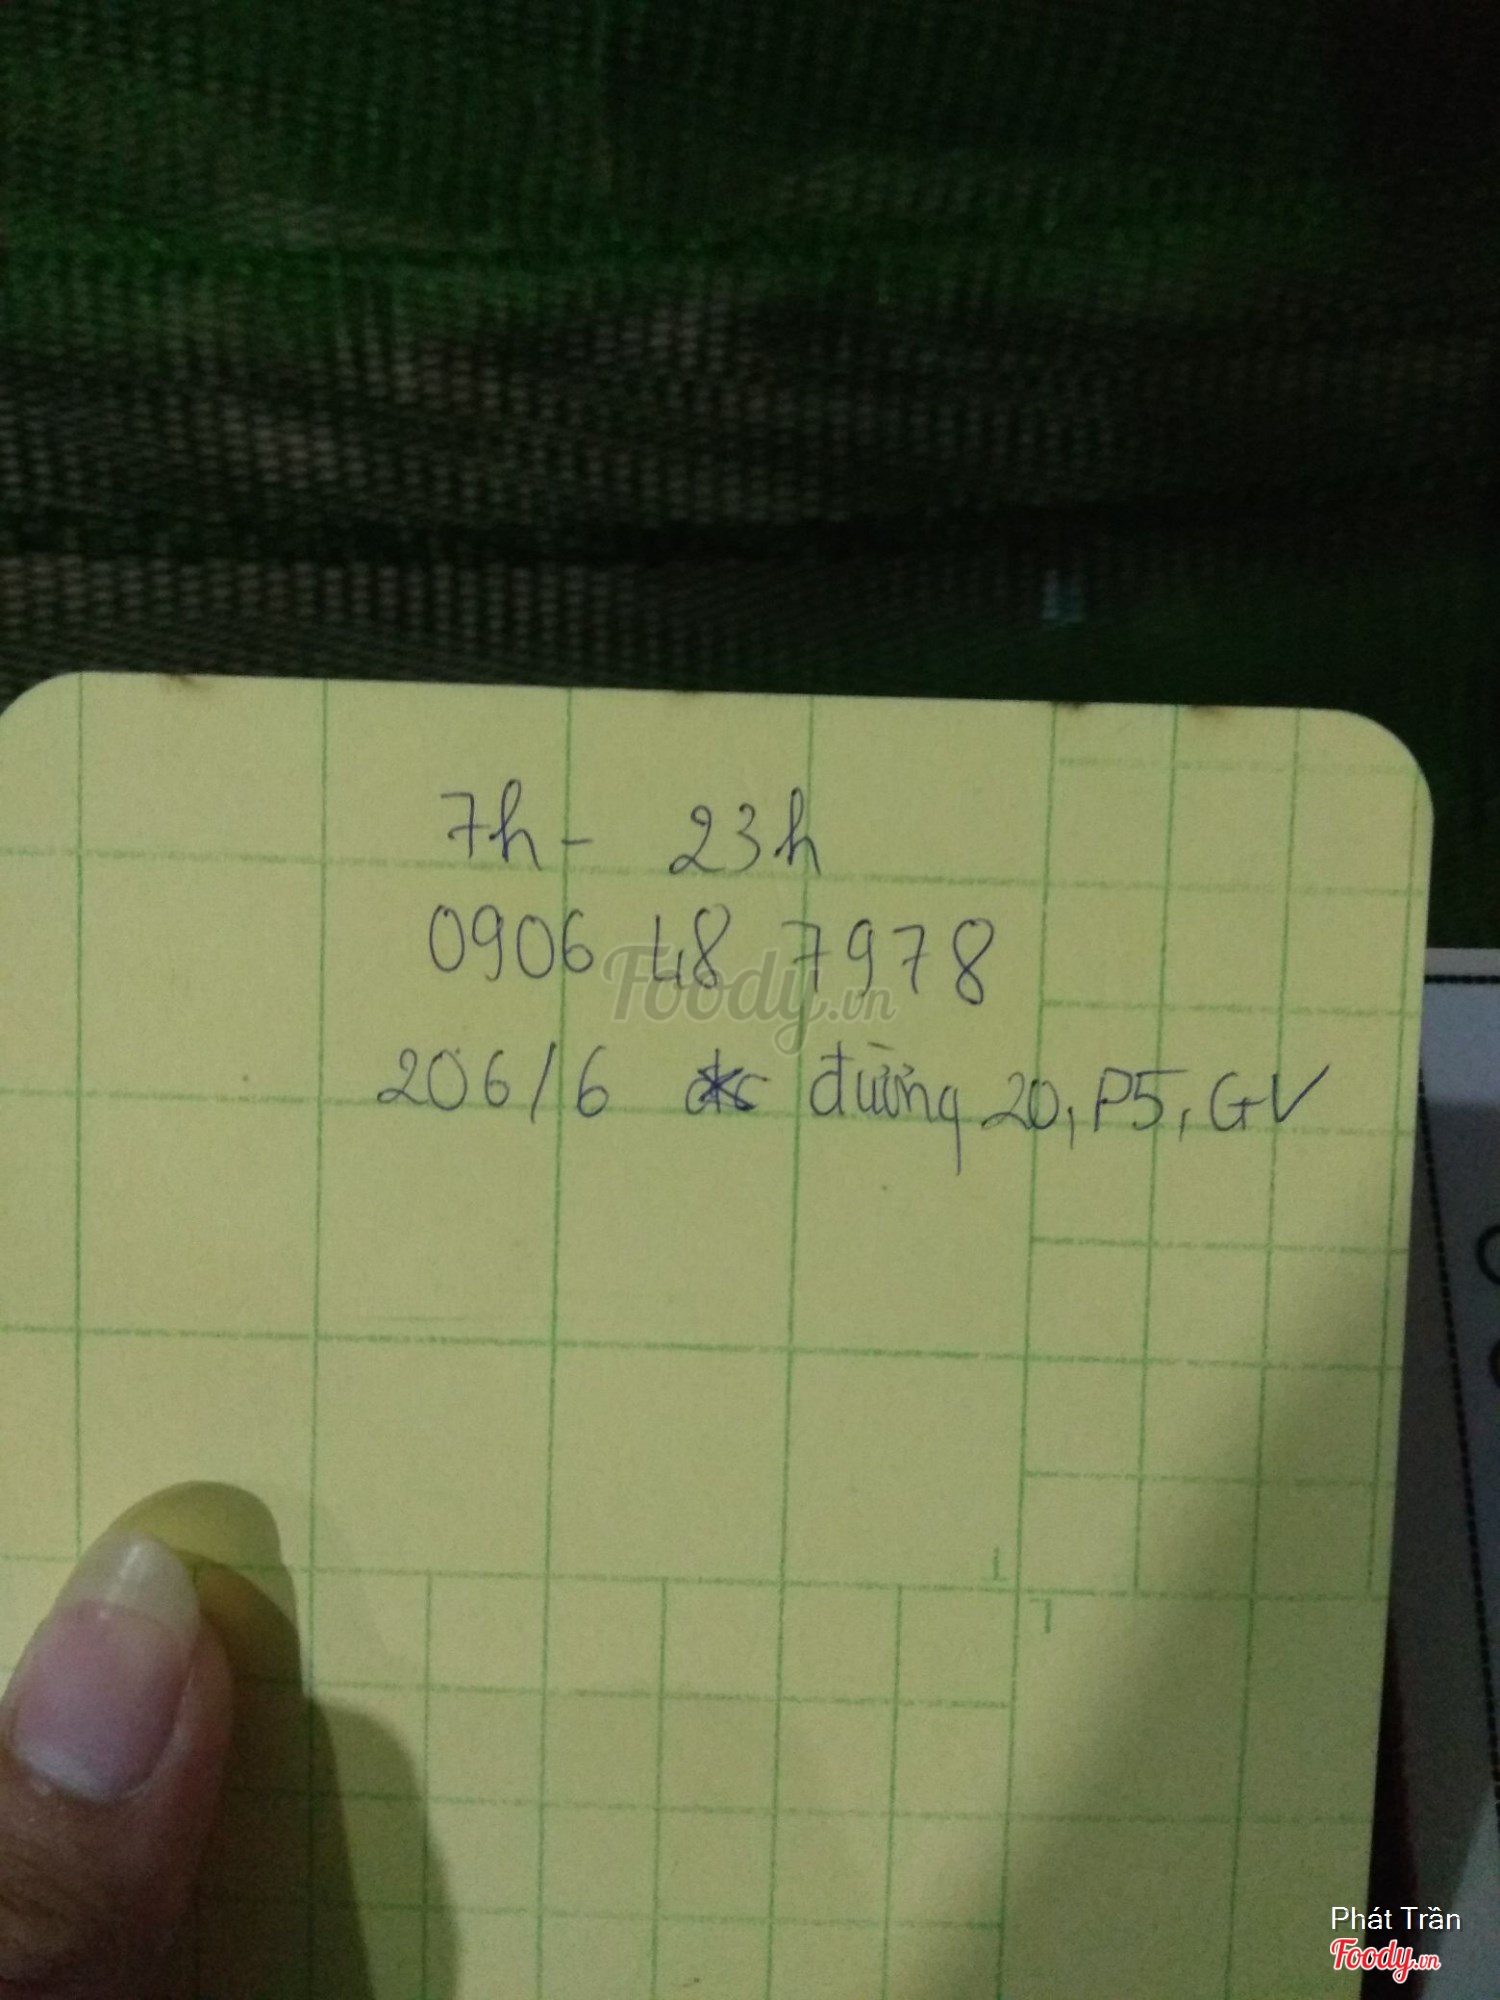 7h - 23h
0906 48 7978
Foody.vn
206/6 đường 20, P5, GV
Phát Trần
Foody.vn